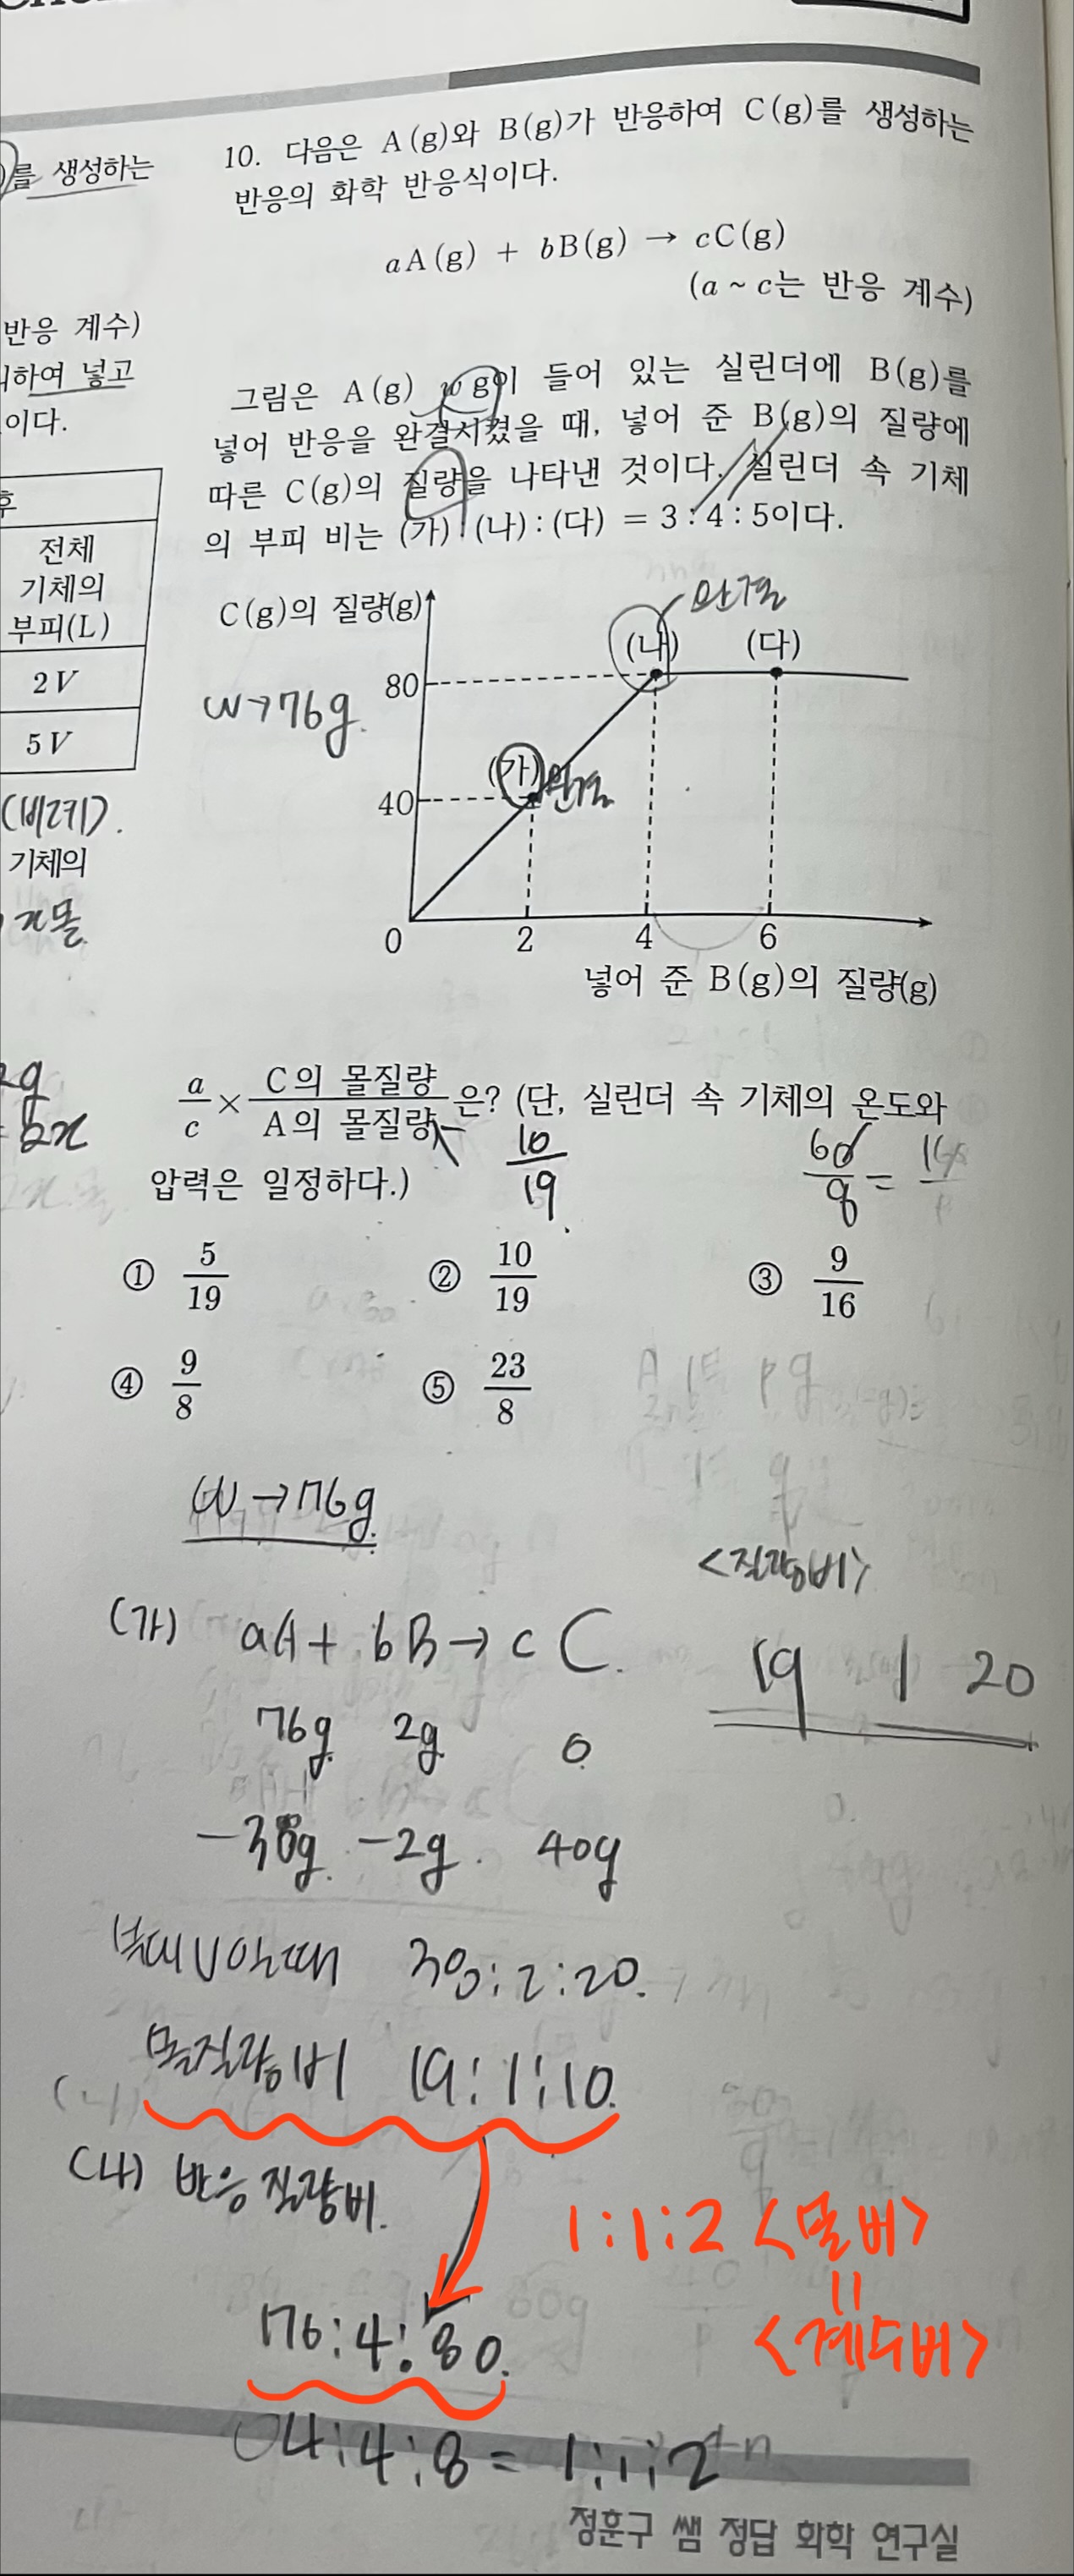 10. 다음은 A(g)와 B(g)가 반응하여 C(g)를 생성하는
반응의 화학 반응식이다.
aA(g) + bB(g) → cC(g)
(a ~ c는 반응 계수)
그림은 A(g) w g이 들어 있는 실린더에 B(g)를
넣어 반응을 완결시켰을 때, 넣어 준 B(g)의 질량에
따른 C(g)의 질량을 나타낸 것이다. 실린더 속 기체
의 부피 비는 (가) : (나) : (다) = 3 : 4 : 5이다.
)를 생성하는
반응 계수)
하여 넣고
이다.
후
전체
기체의
부피(L)
2V
5V
(비례).
기체의
x몰
C(g)의 질량(g)
완결
(나) (다)
80
w→76g.
(가) 완결
40
0 2 4 6
넣어 준 B(g)의 질량(g)
2x
a/c × C의 몰질량/A의 몰질량 은? (단, 실린더 속 기체의 온도와
압력은 일정하다.)
10/19
① 5/19 ② 10/19 ③ 9/16
④ 9/8 ⑤ 23/8
w→76g.
<질량비>
(가) aA + bB → cC.
19 1 20
76g 2g 0
-38g. -2g. 40g
38:2:20.
몰질량비 19:1:10.
(나) 반응 질량비.
1:1:2 <몰비>
=
<계수비>
76:4:80.
4:4:8 = 1:1:2
정훈구 쌤 정답 화학 연구실